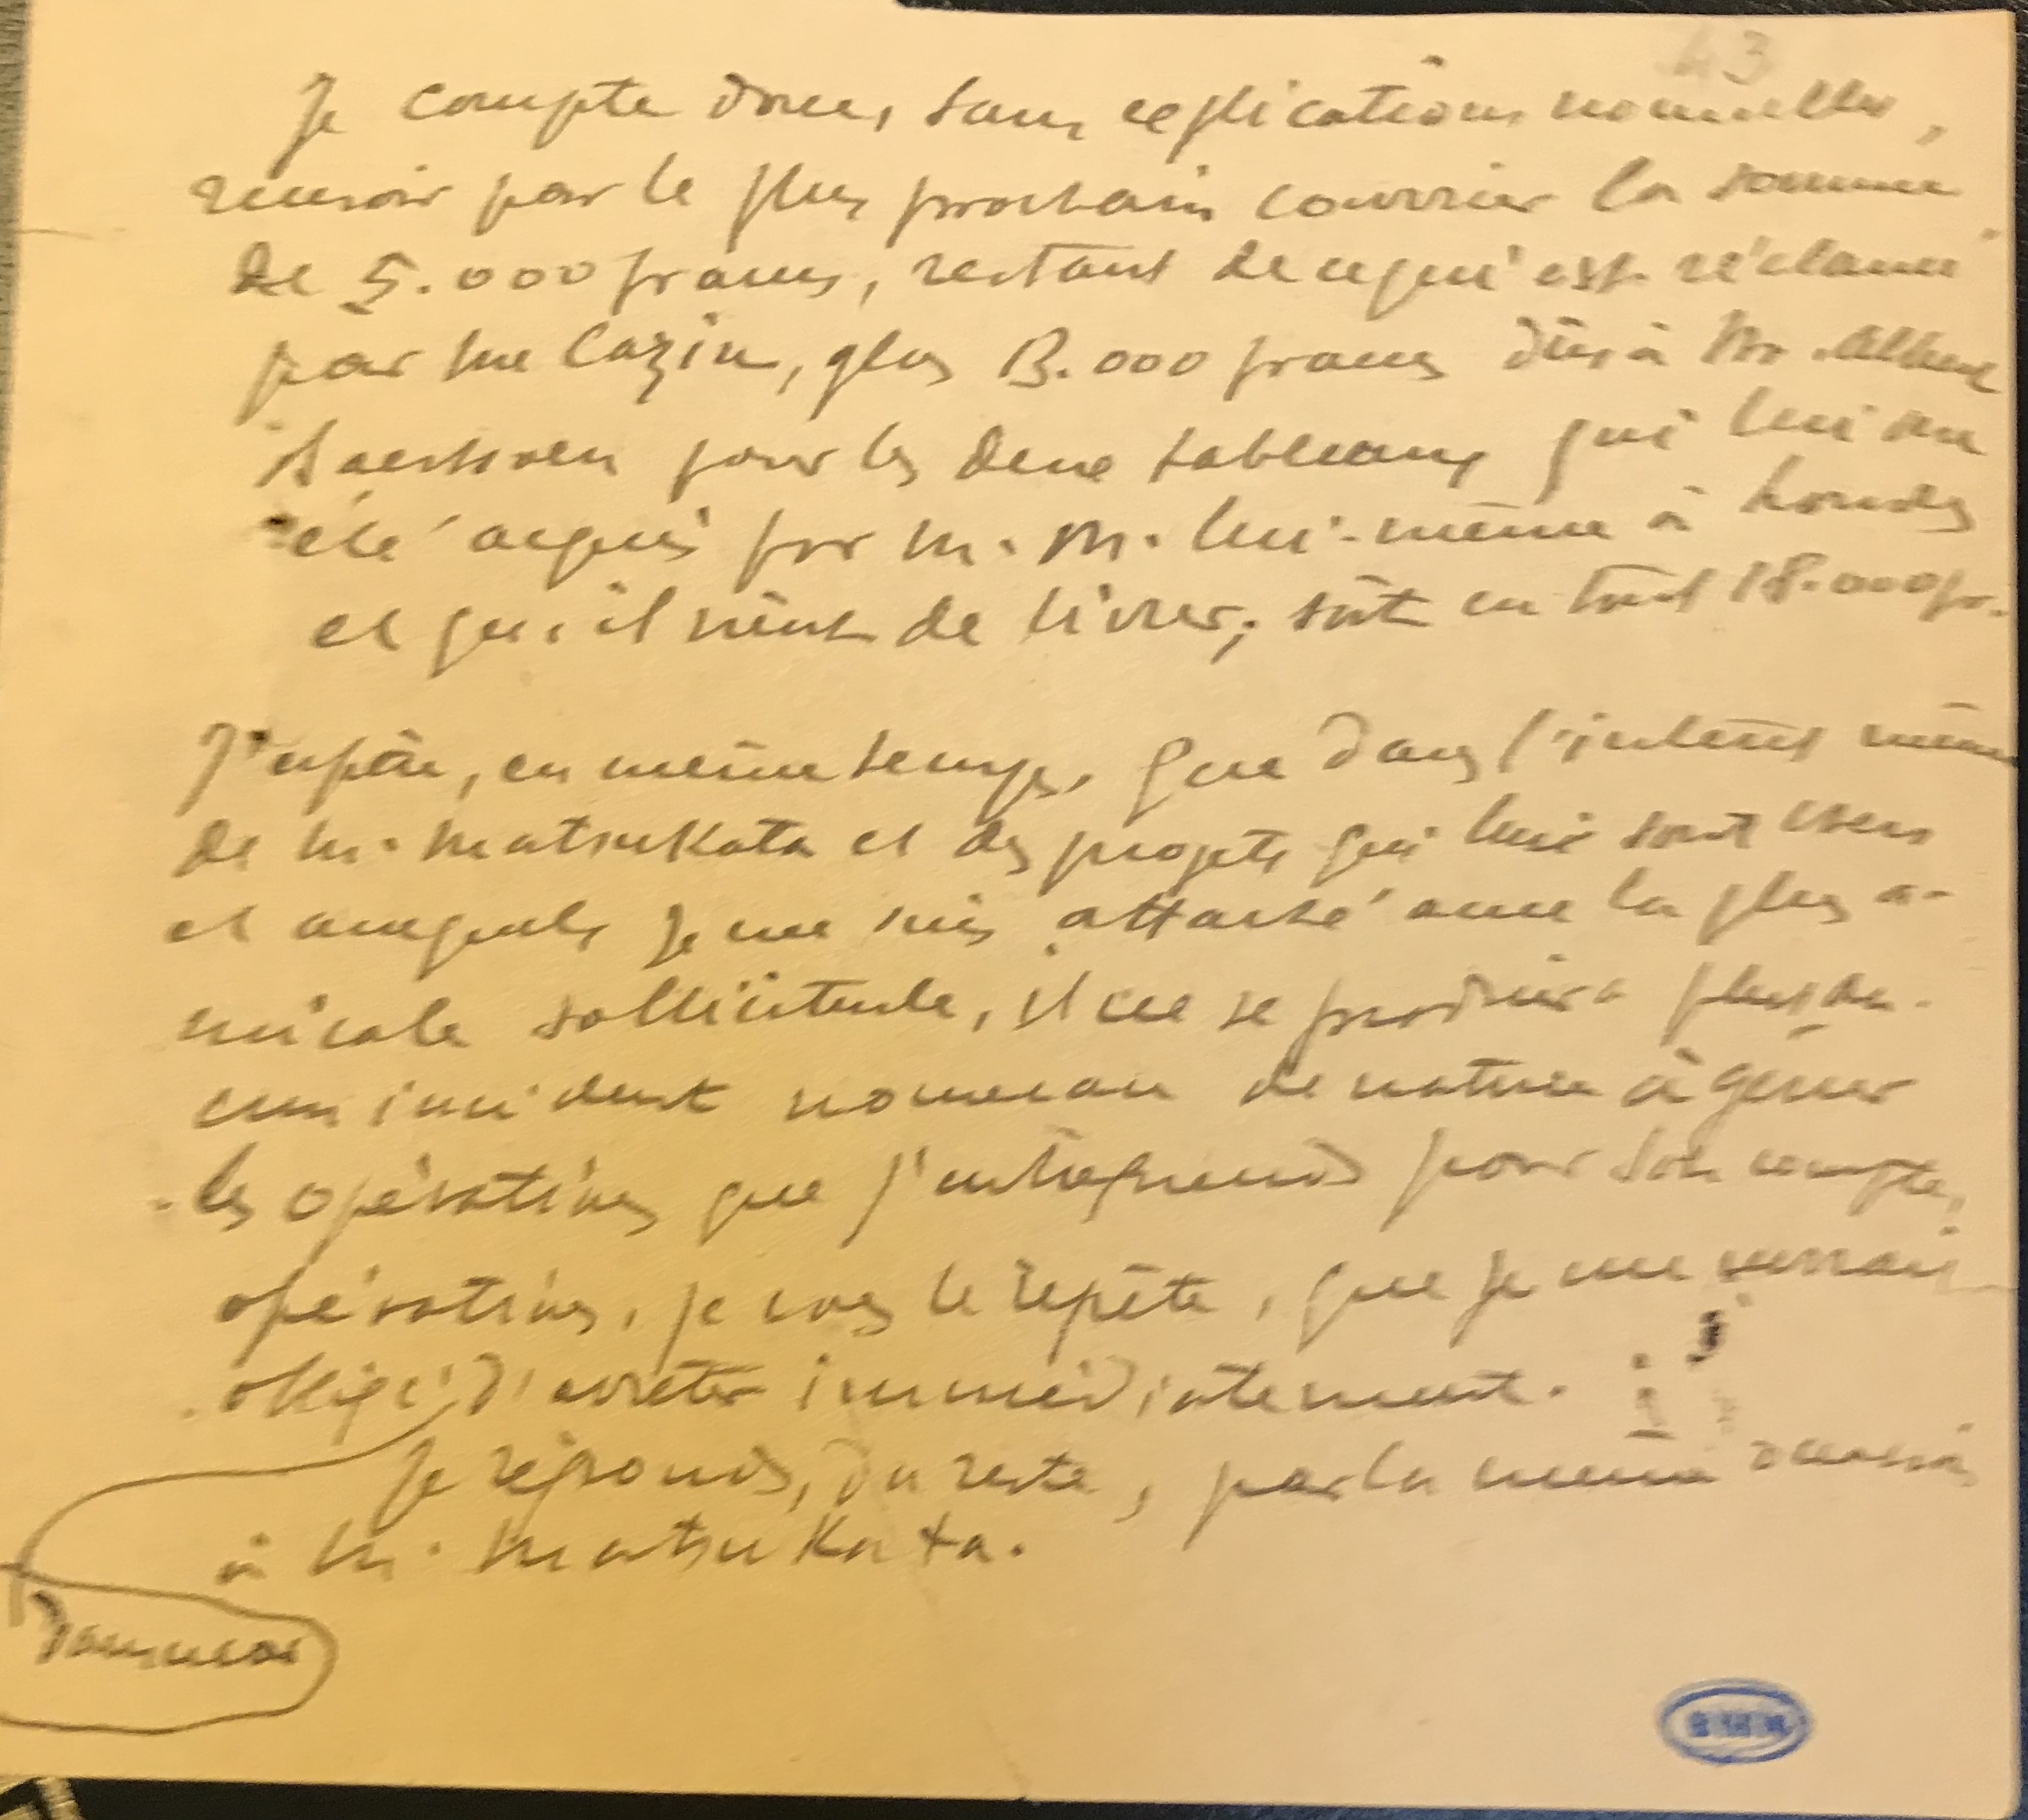 43
Je compte donc, sans explications nouvelles,
recevoir par le plus prochain courrier la somme
de 5.000 francs, restant de ce qui est réclamé
par Me Cazin, plus 13.000 francs dûs à M. Albert
Baertsoen pour les deux tableaux qui lui ont
été acquis par M. M. lui-même à Londres
et qu'il vient de livrer; soit en tout 18.000 fr.
J'espère, en même temps, que dans l'intérêt même
de M. Matsukata et des projets qui lui sont chers
et auxquels je me suis attaché avec la plus a-
micale sollicitude, il ne se produira plus au-
cun incident nouveau de nature à gêner
les opérations que j'entreprends pour son compte,
opérations, je vous le répète, que je me verrais
obligé d'arrêter immédiatement.
Je réponds, du reste, par la même occasion
à M. Matsukata.